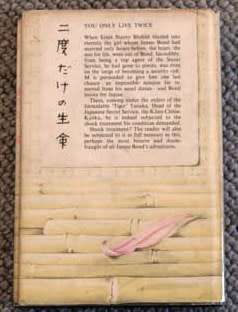 二度だけの生命
YOU ONLY LIVE TWICE
When Ernst Stavro Blofeld blasted into
eternity the girl whom James Bond had
married only hours before, the heart, the
zest for life, went out of Bond. Incredibly,
from being a top agent of the Secret
Service, he had gone to pieces, was even
on the verge of becoming a security risk.
M is persuaded to give him one last
chance – an impossible mission far re-
moved from his usual duties – and Bond
leaves for Japan.
There, coming under the orders of the
formidable 'Tiger' Tanaka, Head of the
Japanese Secret Service, the Kōan-Chōsa-
Kyōku, he is indeed subjected to the
shock treatment his condition demanded.
Shock treatment? The reader will also
be subjected to it in full measure in this,
perhaps the most bizarre and doom-
fraught of all James Bond's adventures.